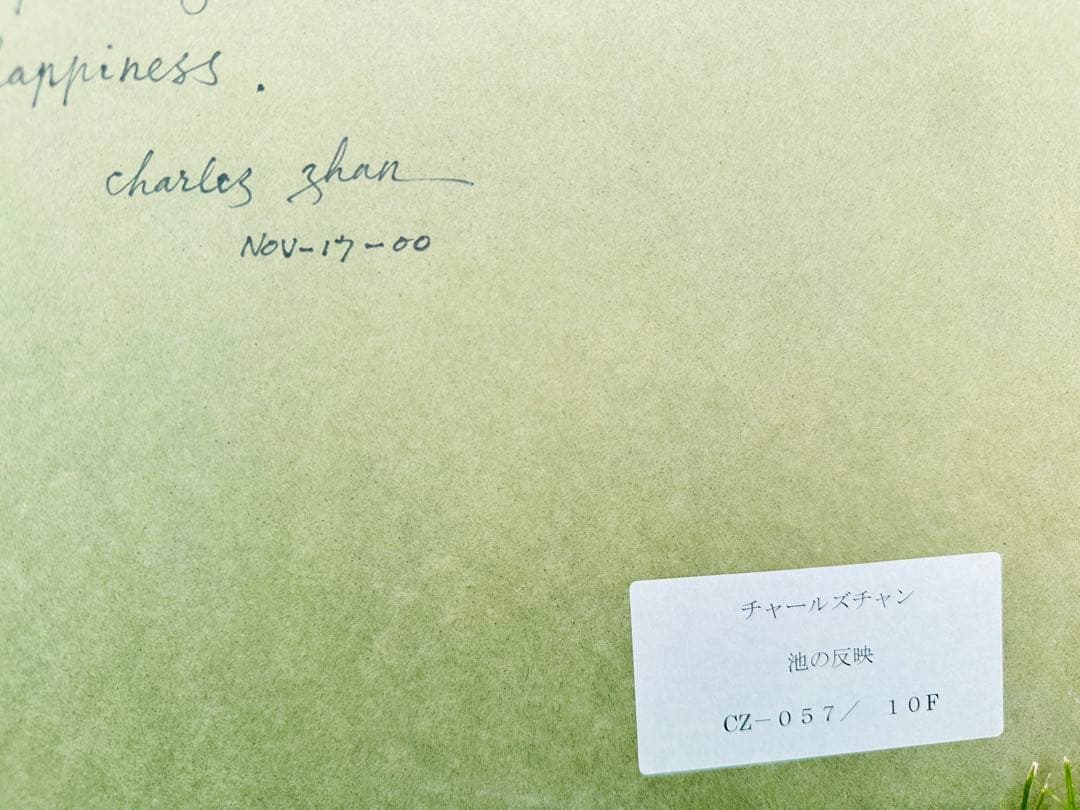 happiness.
charles zhan
NOV-17-00
チャールズチャン
池の反映
CZ-057/ 10F